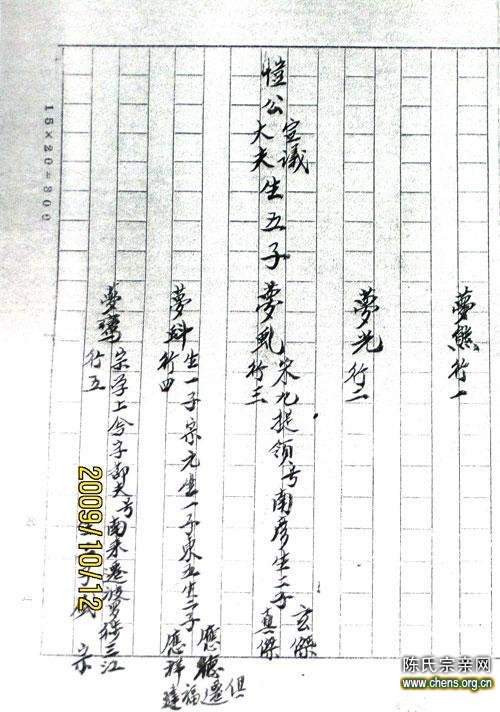 夢熊行一
夢光行二
愷公宣議大夫生五子
夢虬行三
宋九提領号南彥生二子
玄傑
真傑
夢蚪行四
生一子宗元生一子東五生二子
應德
應祥
俱遷福建
夢鸞行五
宗学上舍字夫号南遷三江
宗
15×20=300
2009/10/12
陈氏宗亲网
www.chens.org.cn